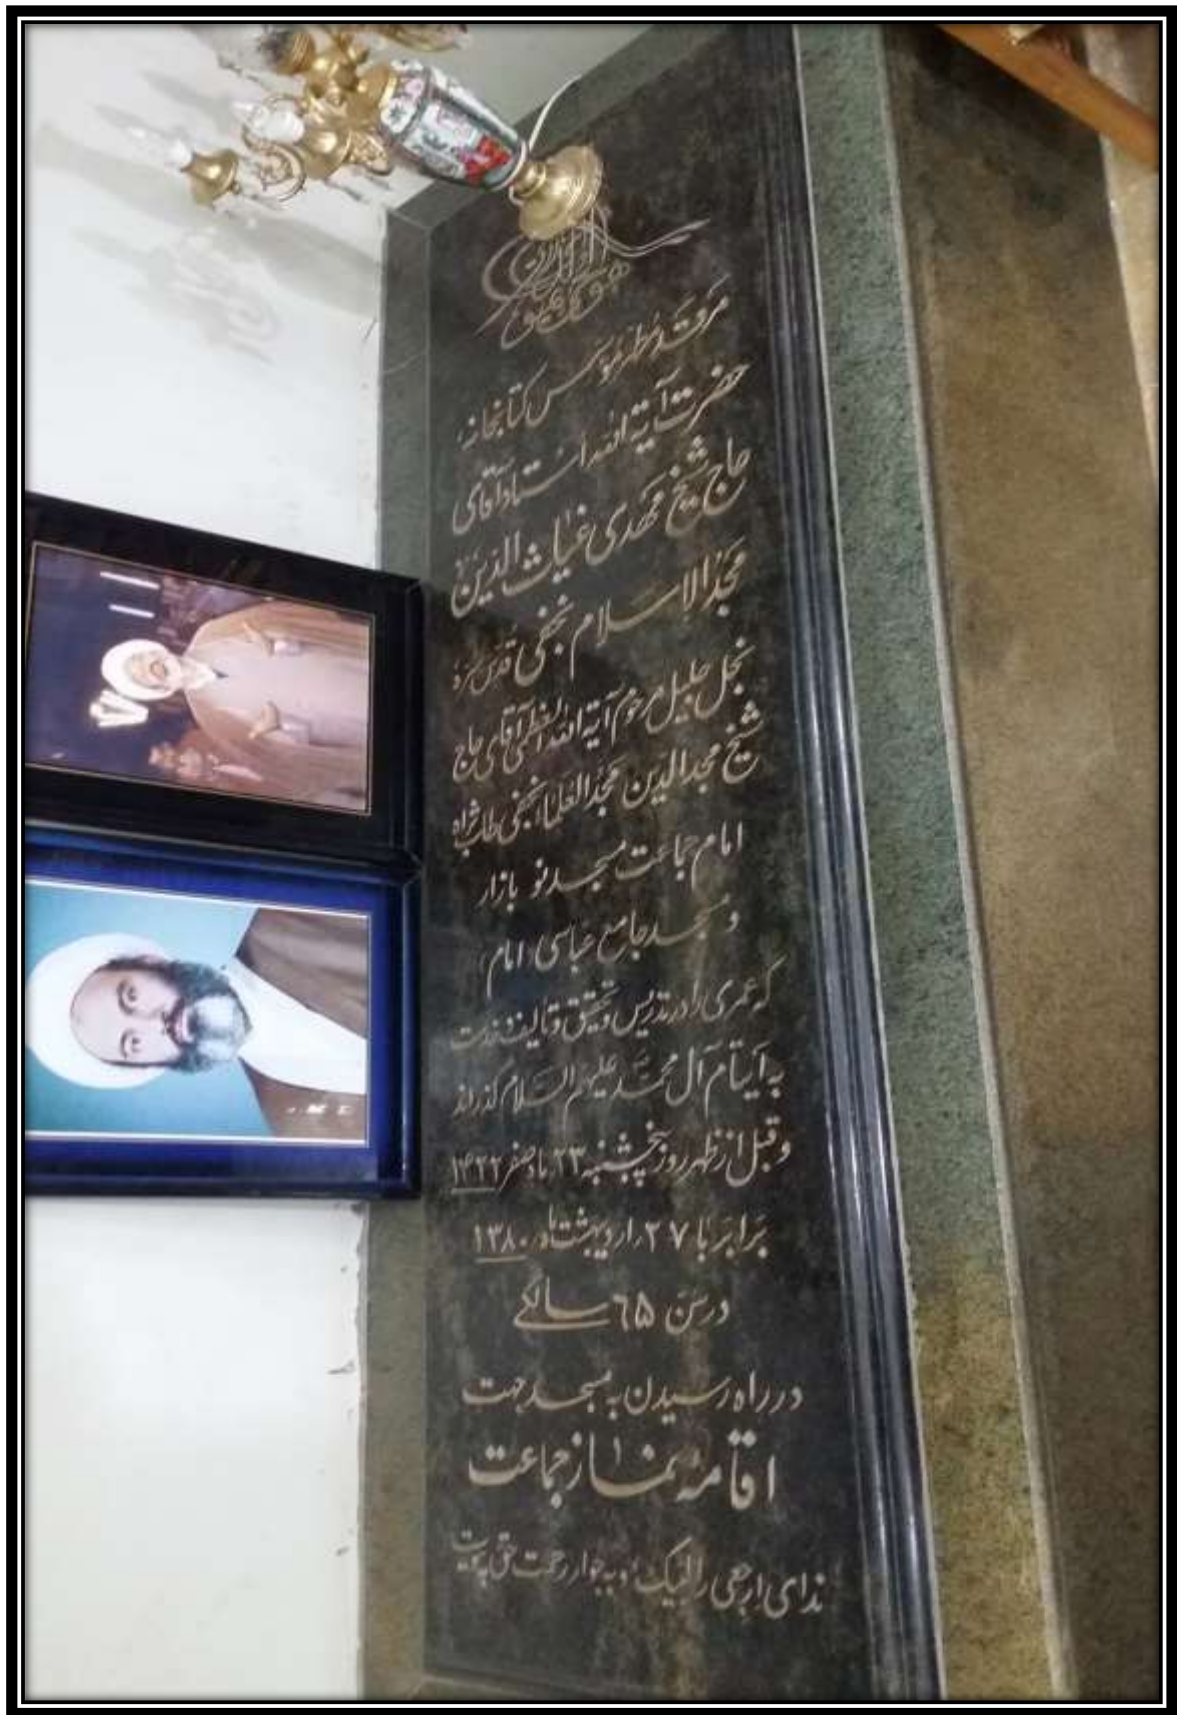 هو الحی الذی لا یموت
مرقد مطهر مؤسس کتابخانه
حضرت آیة الله استاد آقای
حاج شیخ مهدی غیاث الدین
مجدالاسلام نجفی قدس سره
نجل جلیل مرحوم آیة الله العظمی آقای حاج
شیخ مجدالدین مجدالعلماء نجفی طاب ثراه
امام جماعت مسجد نو بازار
و مسجد جامع عباسی امام
که عمری را در تدریس و تحقیق و تالیف و خدمت
به ایتام آل محمد علیهم السلام گذراند
و قبل از ظهر روز پنجشنبه ۲۳ ماه صفر ۱۴۲۲
برابر با ۲۷ اردیبهشت ماه ۱۳۸۰
در سن ۶۵ سالگی
در راه رسیدن به مسجد جهت
اقامه نماز جماعت
ندای ارجعی را لبیک و به جوار رحمت حق پیوست